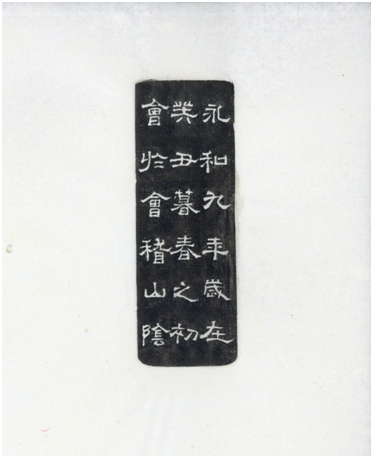 永和九年歲在
癸丑暮春之初
會於會稽山陰